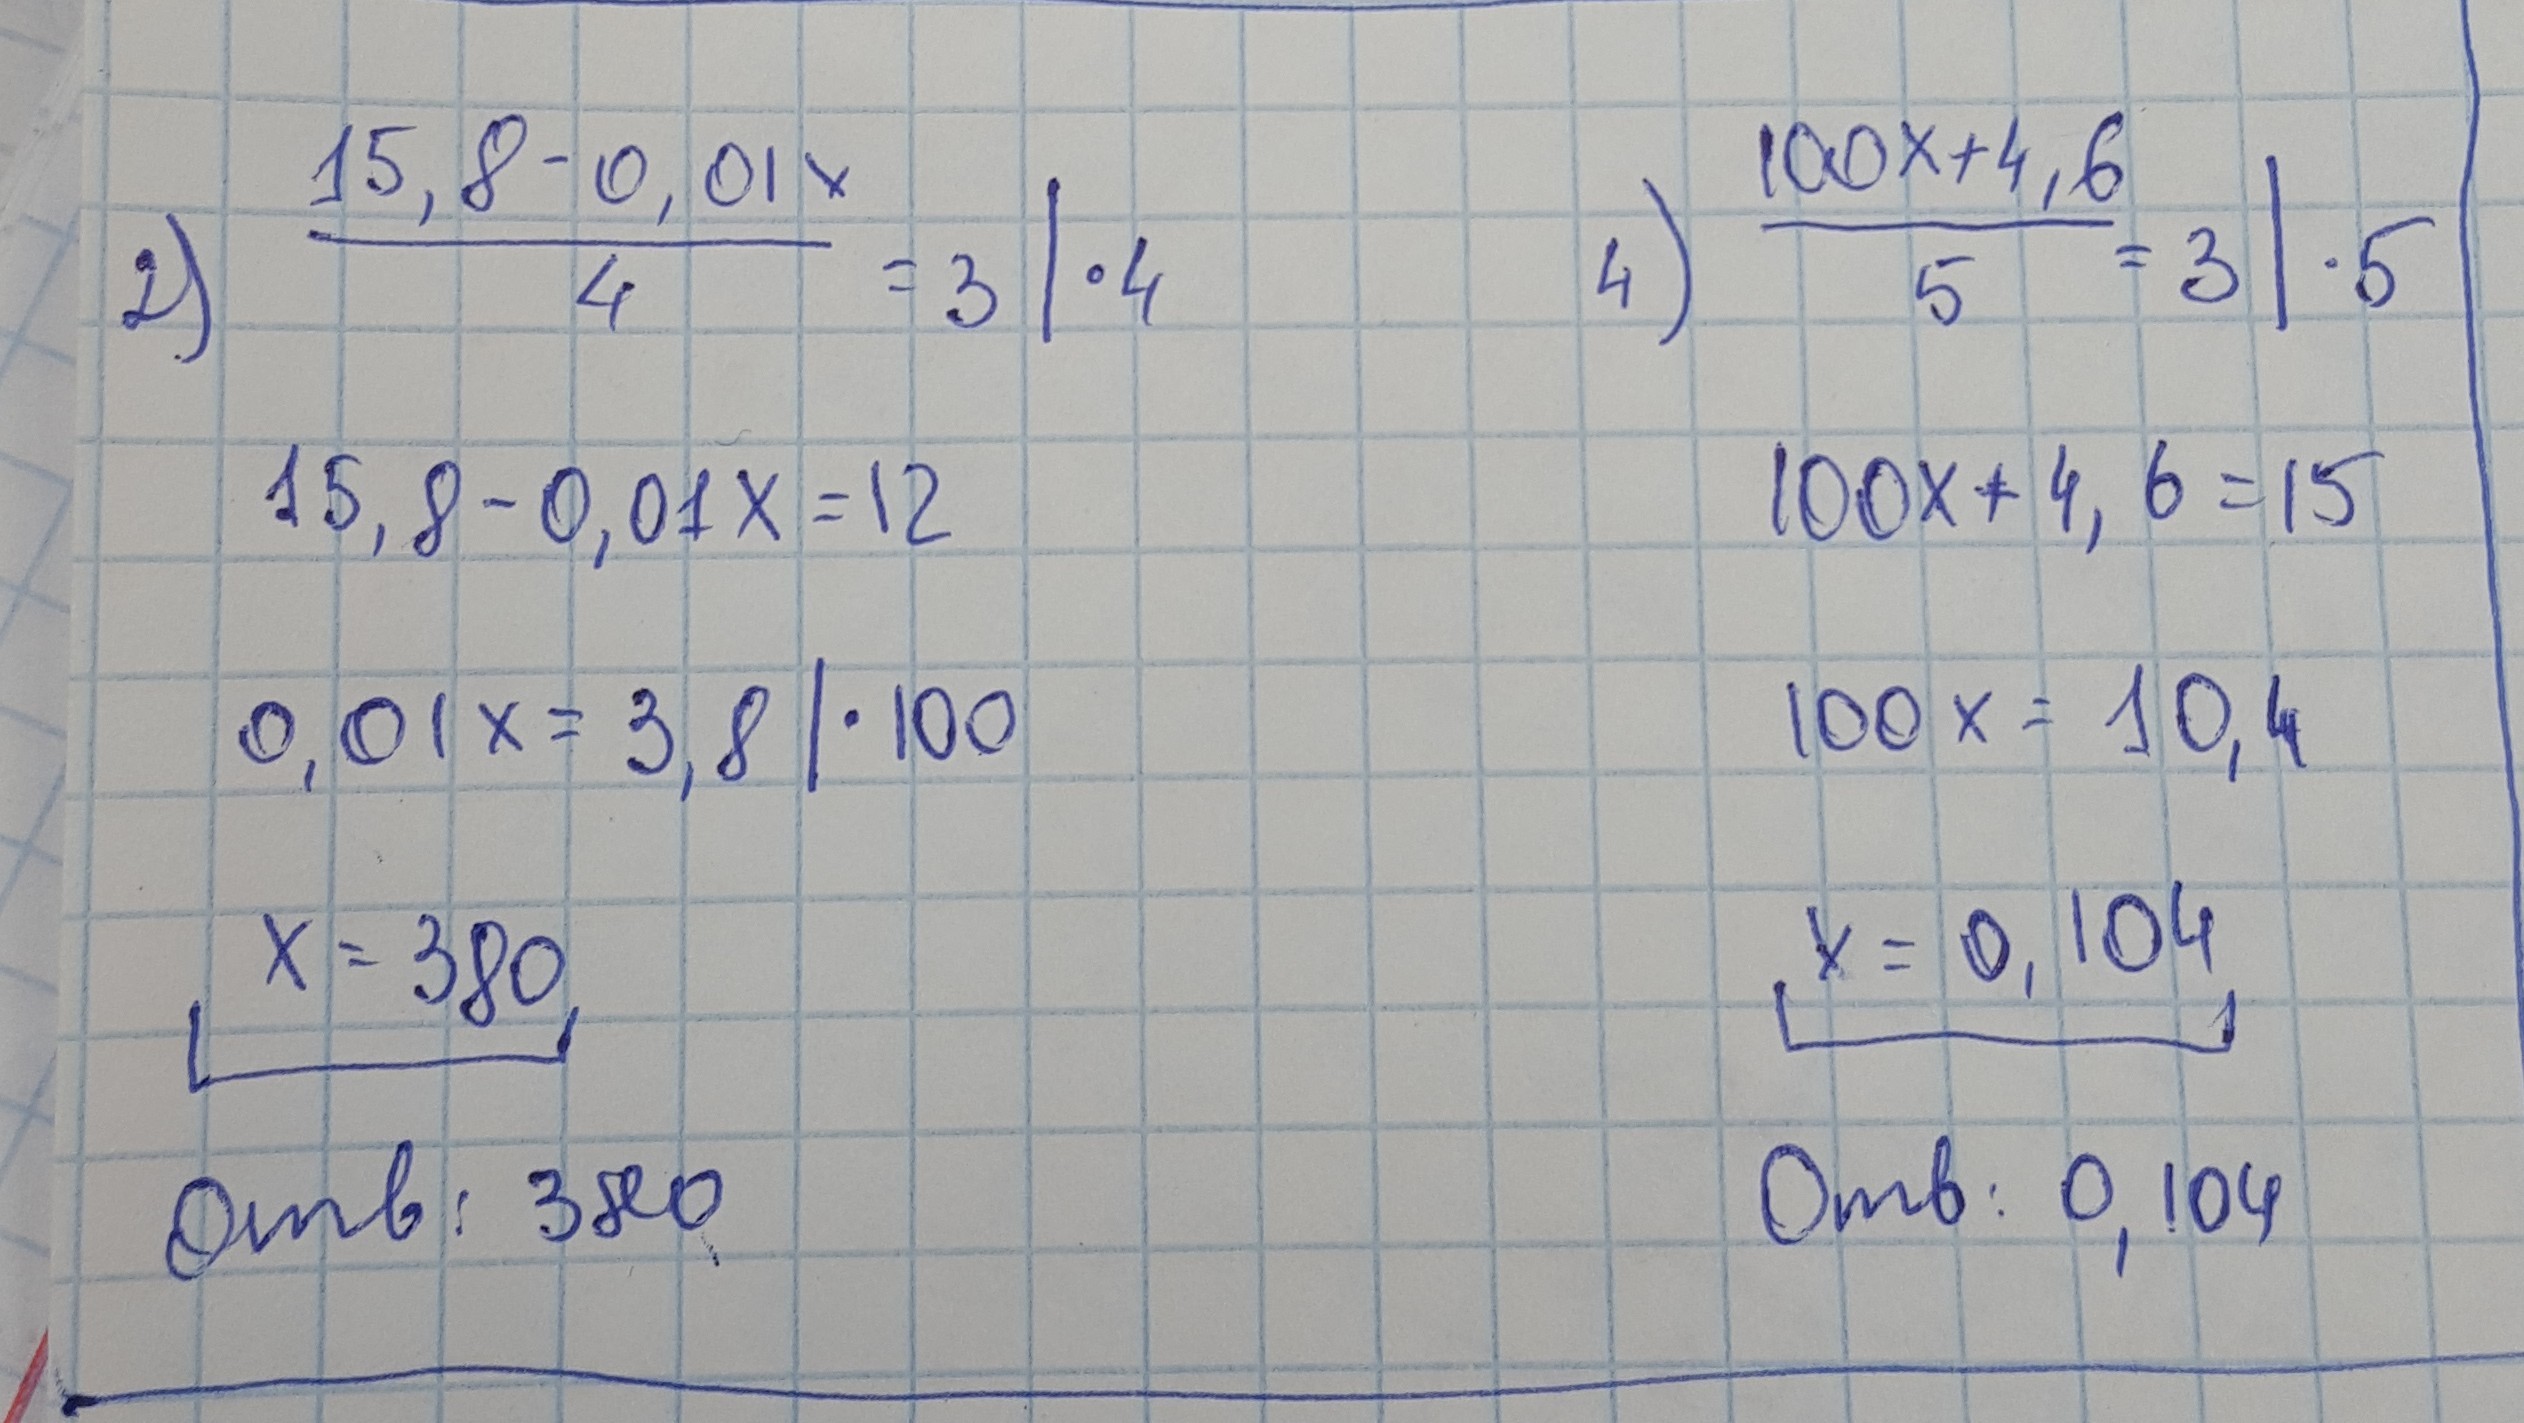 2) (15,8-0,01x)/4 = 3 | · 4
15,8-0,01x=12
0,01x=3,8 | · 100
x=380
Отв: 380
4) (100x+4,6)/5 = 3 | · 5
100x+4,6=15
100x=10,4
x=0,104
Отв: 0,104